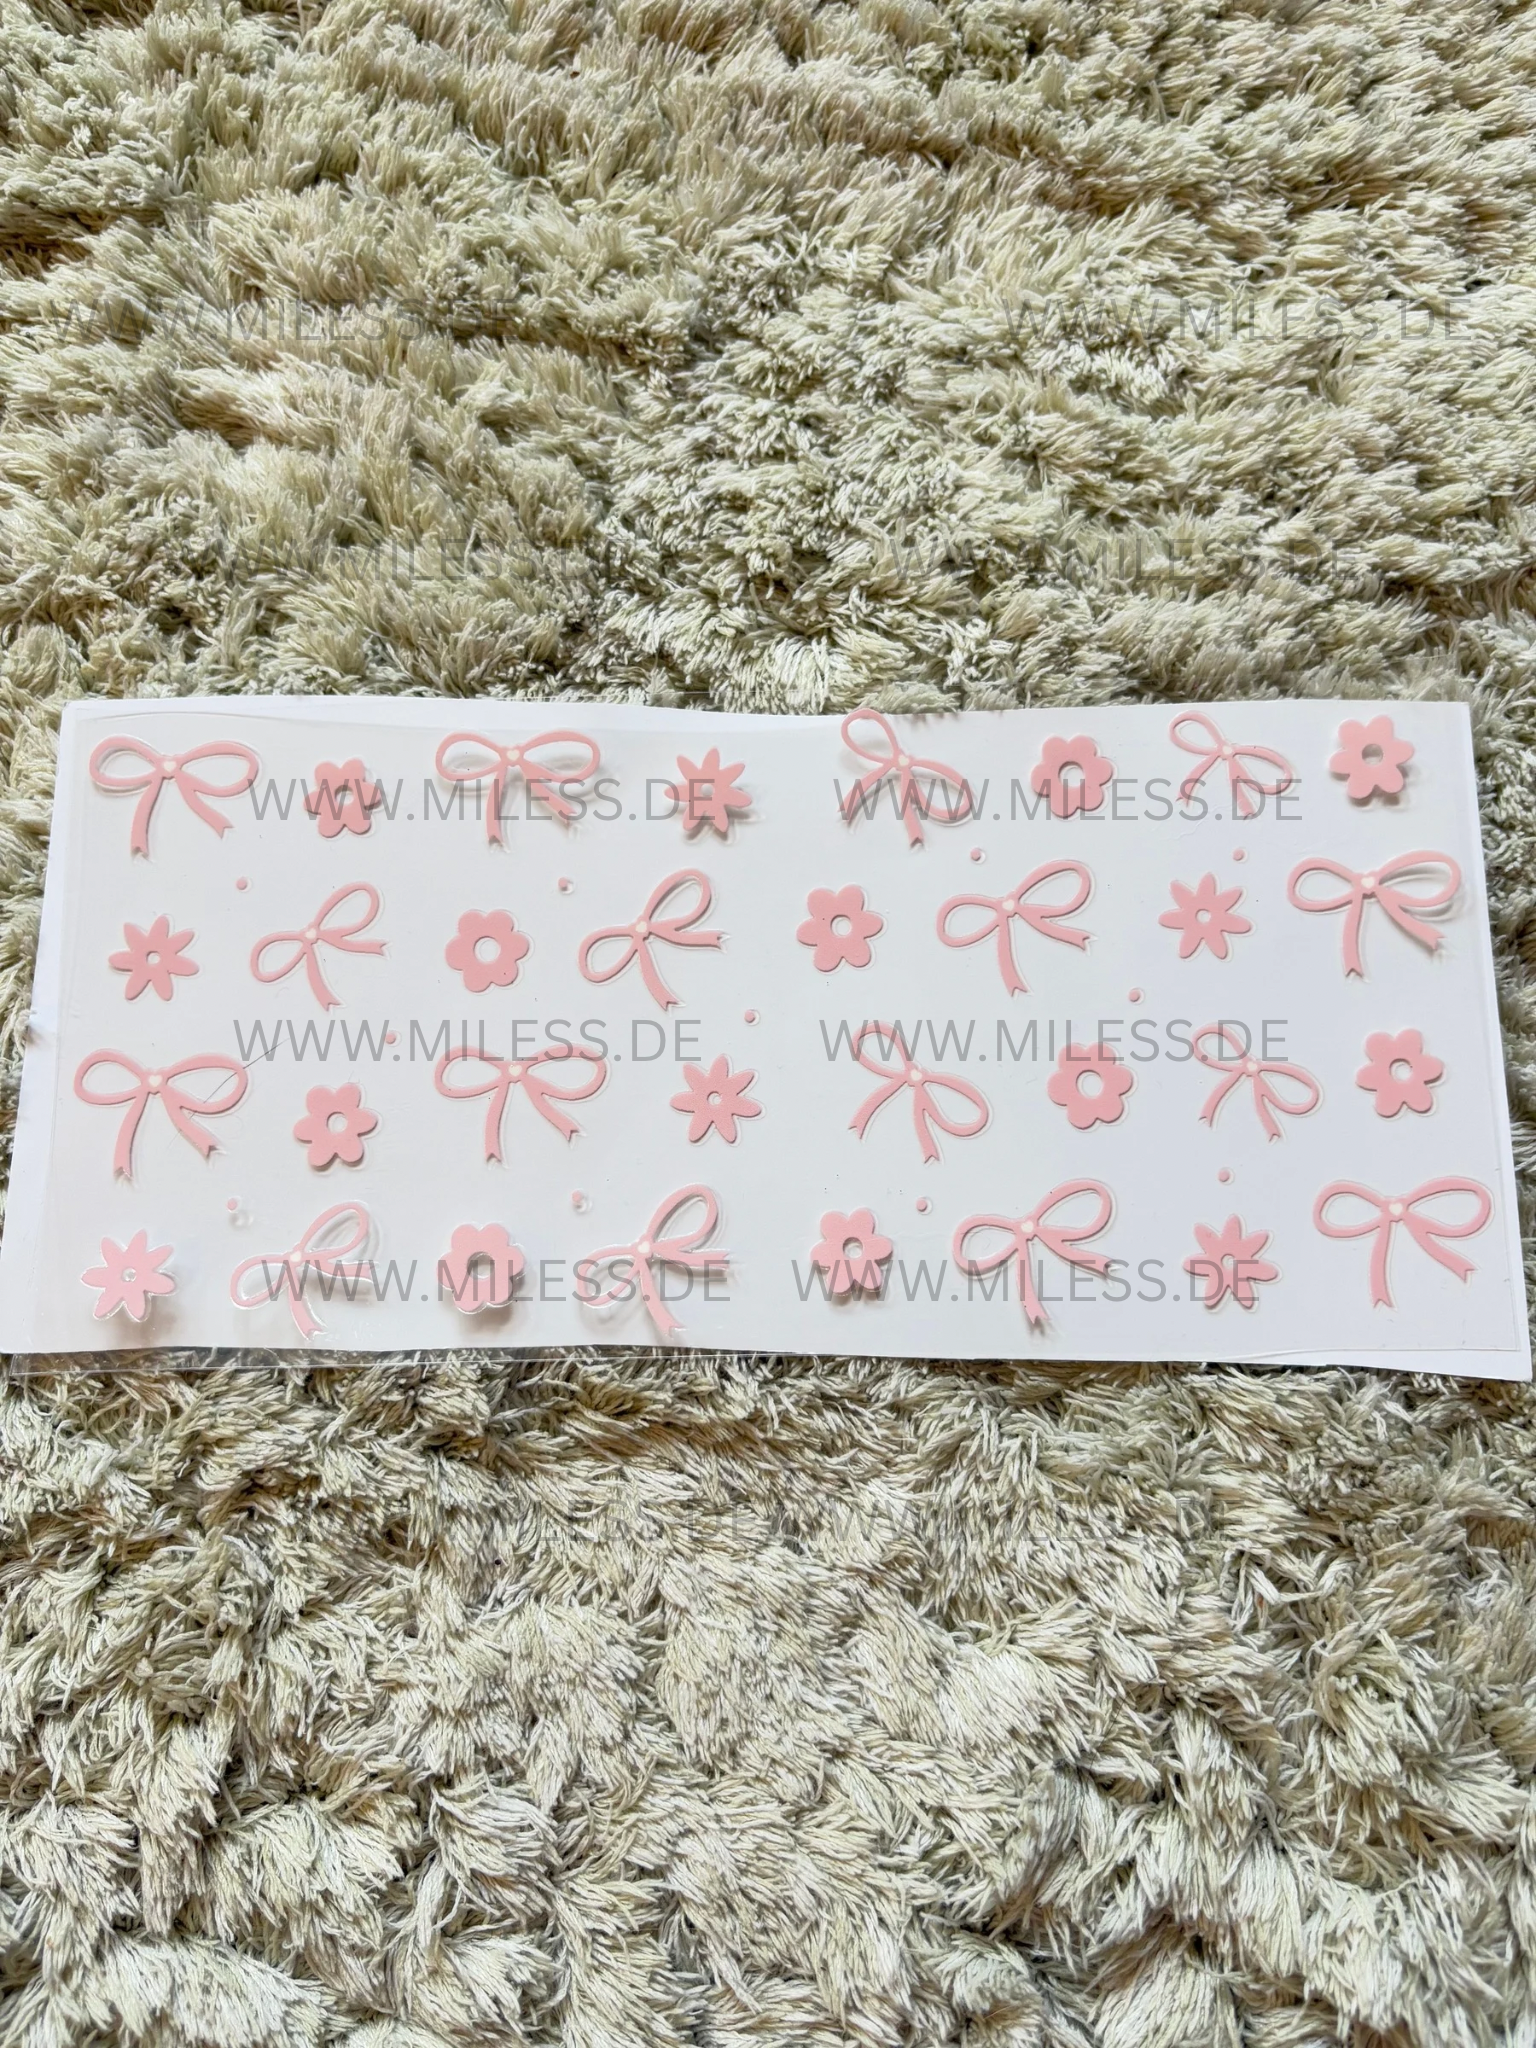 WWW.MILESS.DE WWW.MILESS.DE
WWW.MILESS.DE WWW.MILESS.DE
WWW.MILESS.DE WWW.MILESS.DE
WWW.MILESS.DE WWW.MILESS.DE
WWW.MILESS.DE WWW.MILESS.DE
WWW.MILESS.DE WWW.MILESS.DE